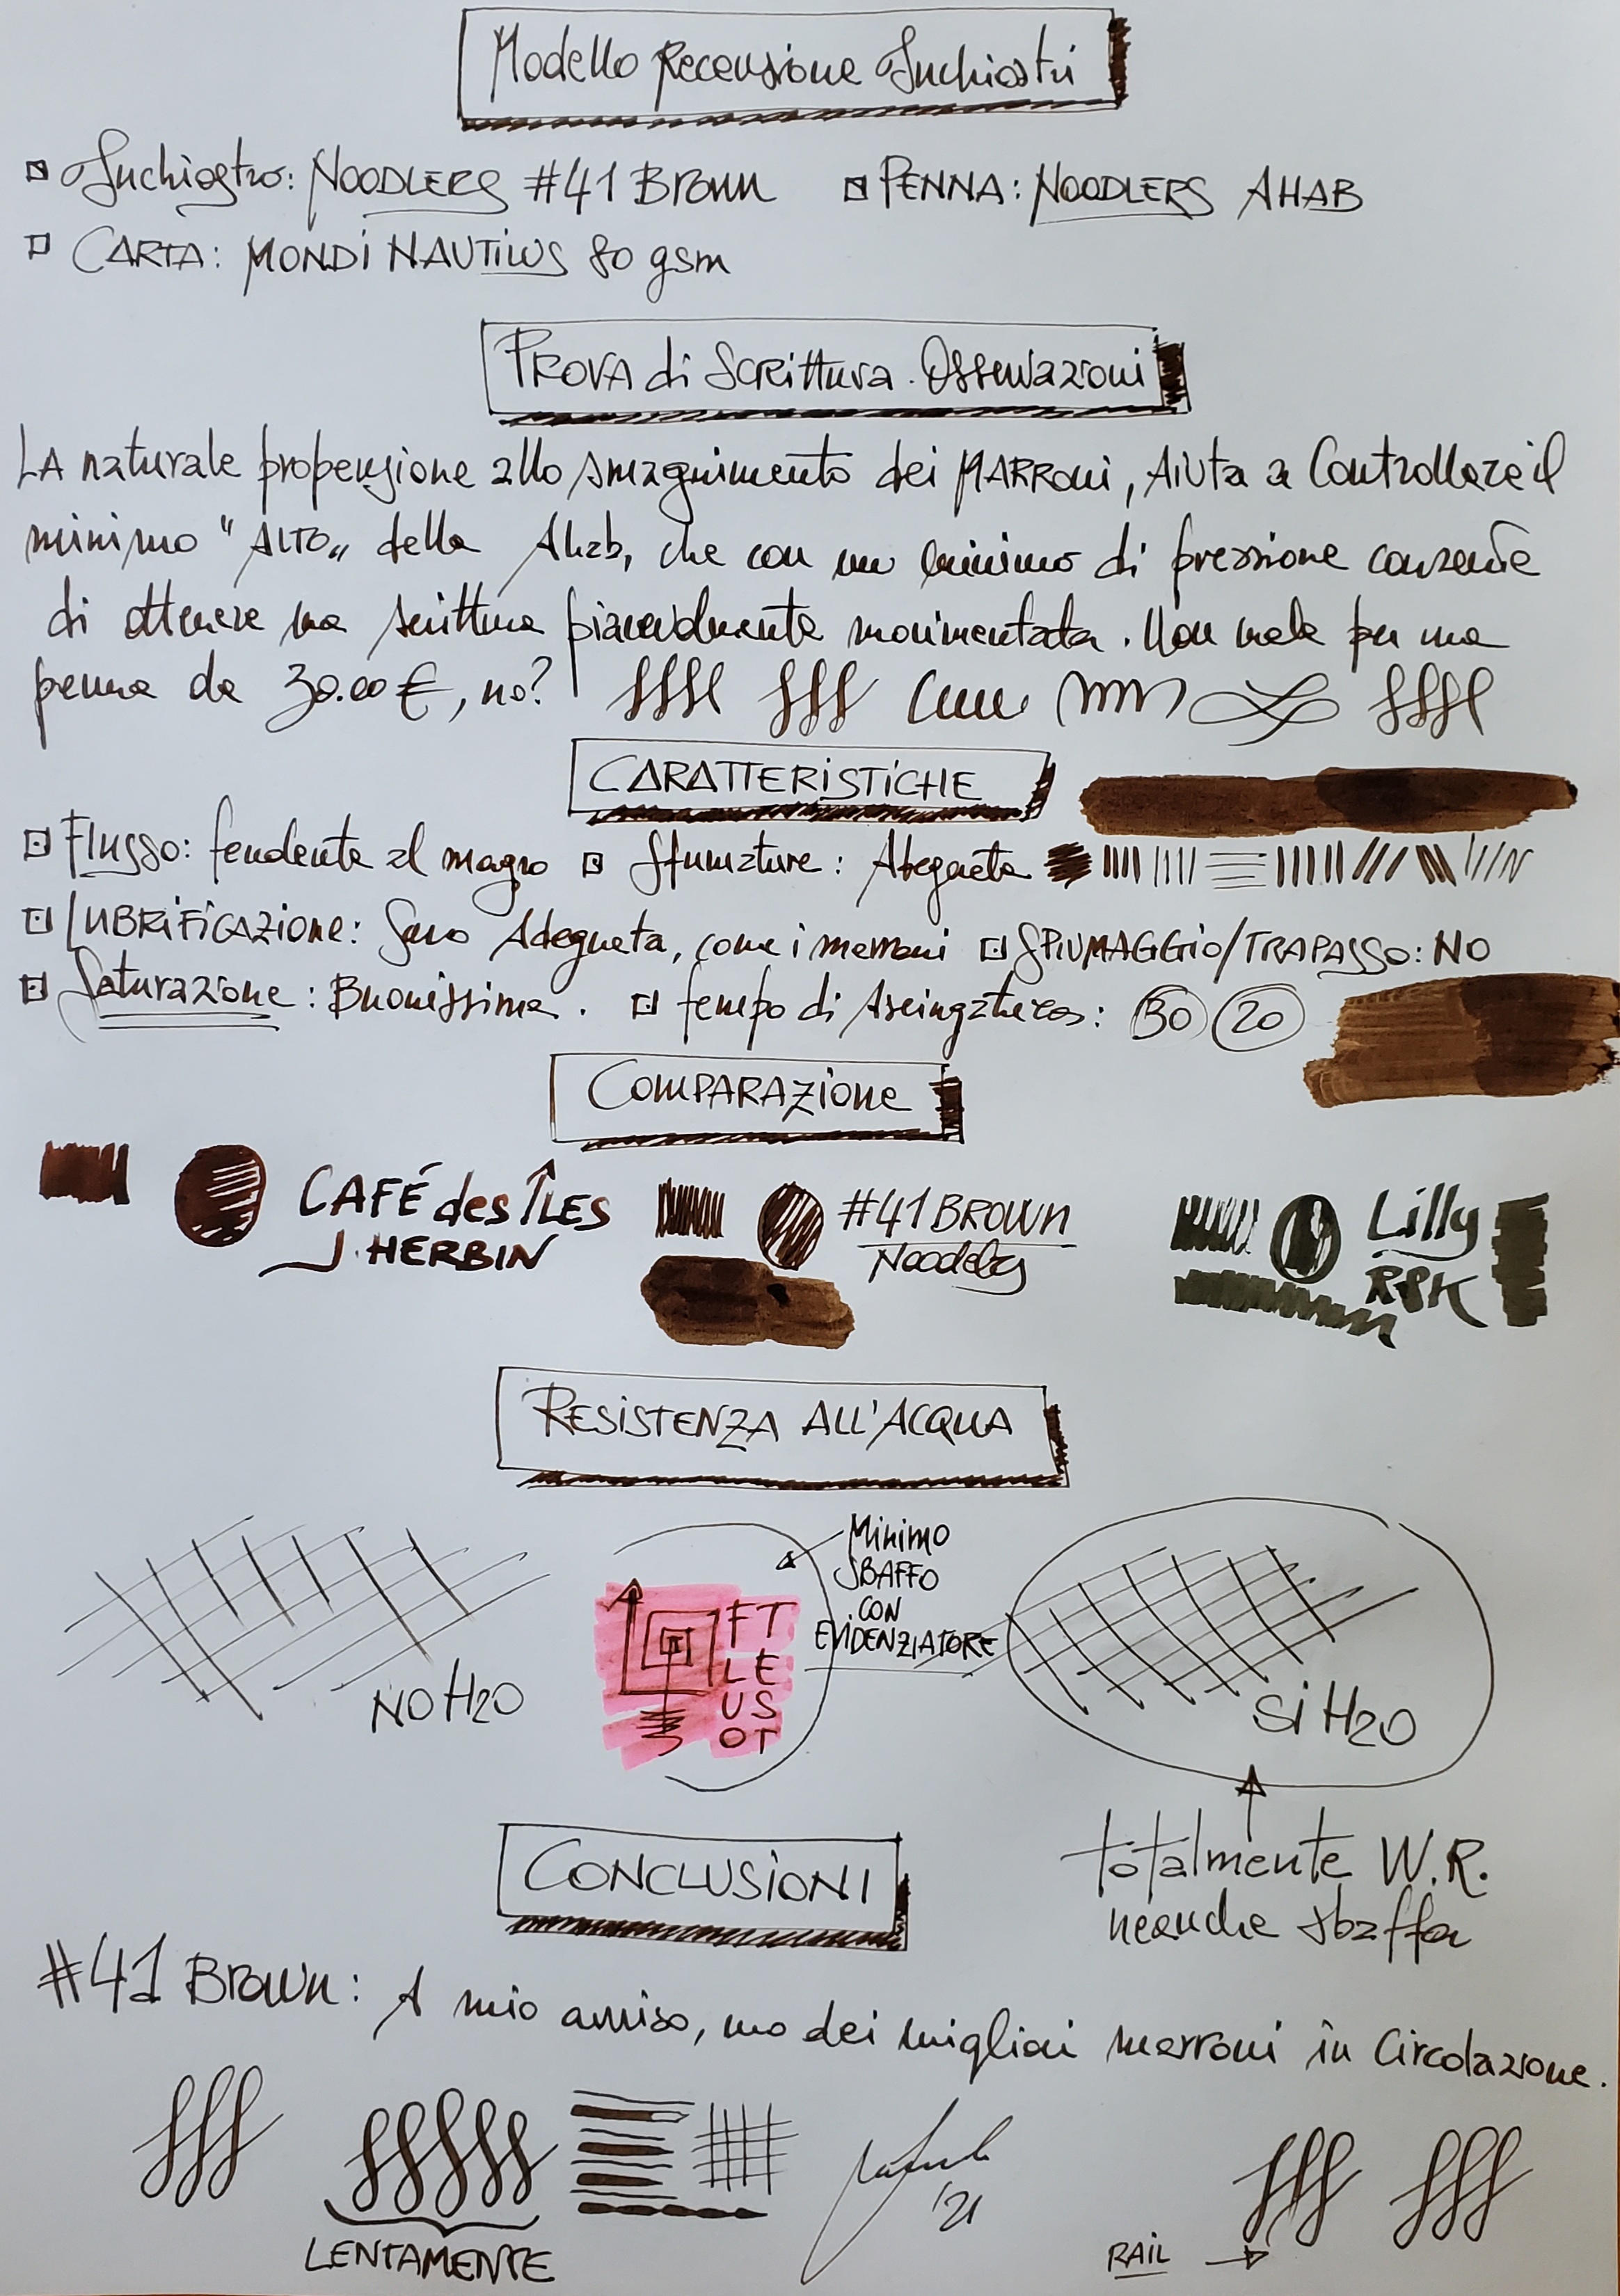 Modello Recensione Inchiostri
Inchiostro: NOODLERS #41 Brown PENNA: NOODLERS AHAB
CARTA: MONDI NAUTILUS 80 gsm
PROVA di Scrittura. Osservazioni
LA naturale propensione allo smagrimento dei MARRONI, AIUTA a Controllare il
minimo "ALTO" della Ahab, che con un minimo di pressione consente
di ottenere una scrittura piacevolmente movimentata. Non male per una
penna da 30.00 €, no?
CARATTERISTICHE
Flusso: tendente al magro Sfumature: Adeguate
LUBRIFICAZIONE: Adeguata, come i marroni SPIUMAGGIO/TRAPASSO: NO
Saturazione: Buonissima. tempo di Asciugatura: 30 20
COMPARAZIONE
CAFÉ des ÎLES
J. HERBIN
#41 BROWN
Noodlers
Lilly
R&K
RESISTENZA ALL'ACQUA
Minimo
SBAFFO
CON
EVIDENZIATORE
F T
L E
U S
O T
NO H2O
SI H2O
totalmente W.R.
neanche sbaffa
CONCLUSIONI
#41 Brown: A mio avviso, uno dei migliori marroni in Circolazione.
'21
LENTAMENTE
RAIL